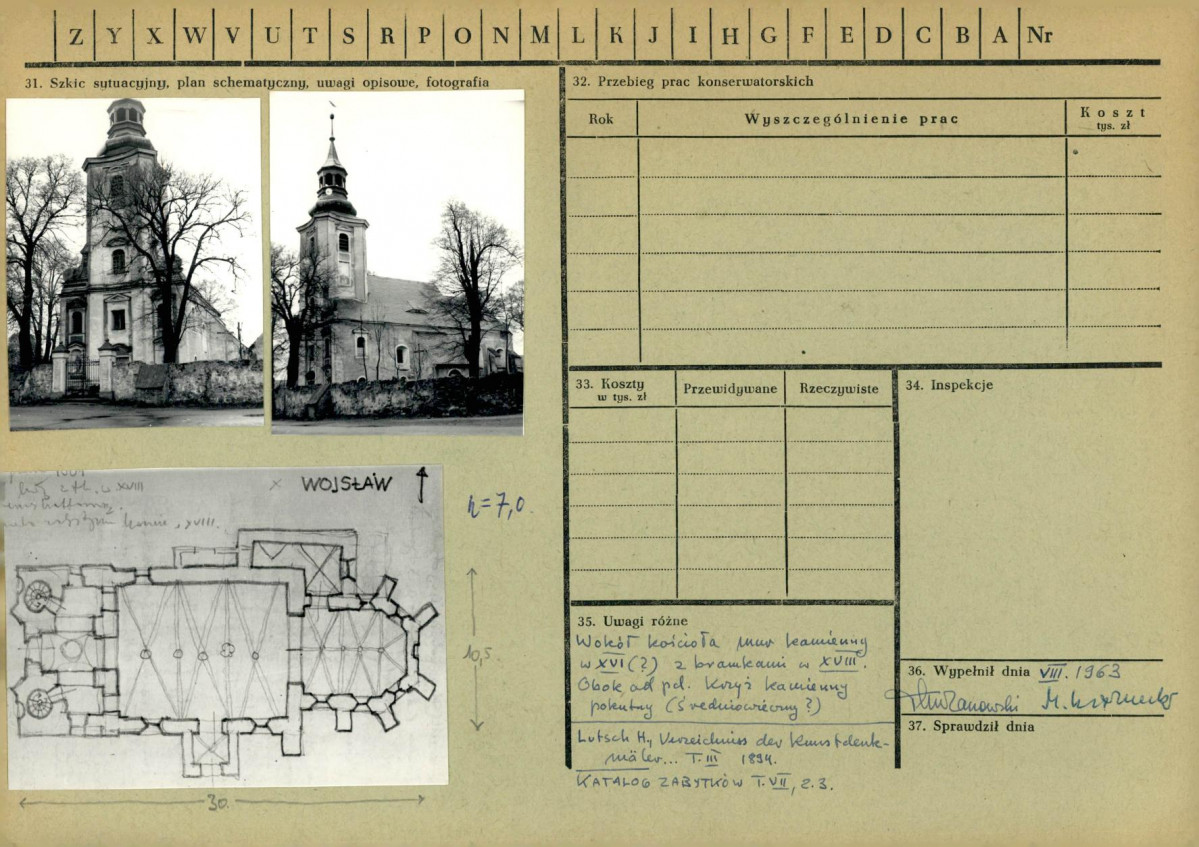 Z Y X W V U T S R P O N M L K J I H G F E D C B A Nr
31. Szkic sytuacyjny, plan schematyczny, uwagi opisowe, fotografia
WOJSŁAW
h=7,0.
10,5.
30.
32. Przebieg prac konserwatorskich
Rok
Wyszczególnienie prac
Koszt
tys. zł
33. Koszty
w tys. zł
Przewidywane
Rzeczywiste
34. Inspekcje
35. Uwagi różne
Wokół kościoła mur kamienny
w XVI (?) z bramkami w XVIII.
Obok, od pd. Krzyż kamienny
pokutny (Średniowieczny?)
Lutsch H., Verzeichniss der Kunstdenk-
mäler... T. III 1894.
KATALOG ZABYTKÓW T. VII, z. 3.
36. Wypełnił dnia VIII. 1963
37. Sprawdził dnia